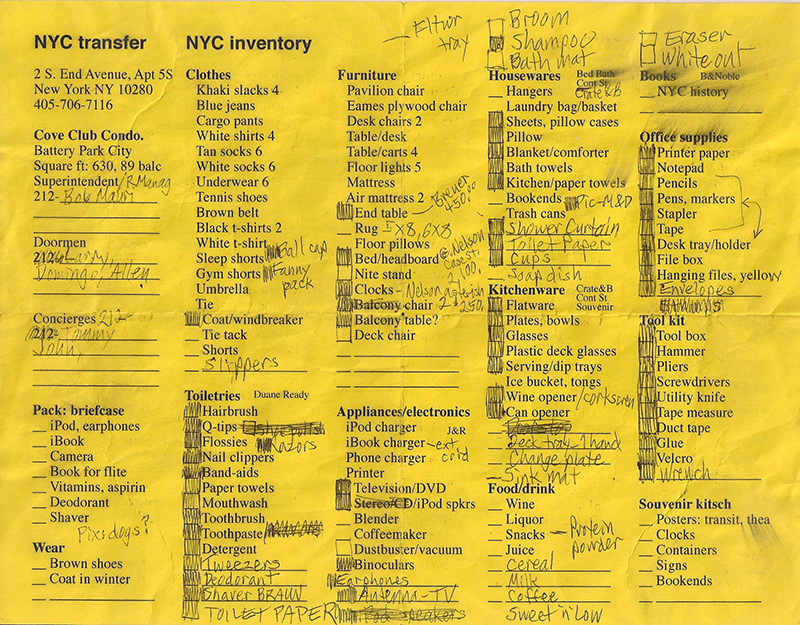 NYC transfer
2 S. End Avenue, Apt 5S
New York NY 10280
405-706-7116
Cove Club Condo.
Battery Park City
Square ft: 630, 89 balc
Superintendent/RManag
212- Bob
Doormen
212- Larry,
Domingo, Allen
Concierges 212-
212- Tommy
John,
Pack: briefcase
iPod, earphones
iBook
Camera
Book for flite
Vitamins, aspirin
Deodorant
Shaver
Pix dogs?
Wear
Brown shoes
Coat in winter
NYC inventory
Clothes
Khaki slacks 4
Blue jeans
Cargo pants
White shirts 4
Tan socks 6
White socks 6
Underwear 6
Tennis shoes
Brown belt
Black t-shirts 2
White t-shirt
Sleep shorts Ball cap
Gym shorts Fanny pack
Umbrella
Tie
Coat/windbreaker
Tie tack
Shorts
Slippers
Toiletries Duane Ready
Hairbrush
Q-tips shoe polish
Flossies Razors
Nail clippers
Band-aids
Paper towels
Mouthwash
Toothbrush
Toothpaste
Detergent
Tweezers
Deodorant
Shaver BRAUN
TOILET PAPER
tray
Furniture
Pavilion chair
Eames plywood chair
Desk chairs 2
Table/desk
Table/carts 4
Floor lights 5
Mattress
Air mattress 2
End table Breuer 450.00
Rug 5x8, 6x8
Floor pillows
Bed/headboard
Nite stand
Clocks - Nelson
Balcony chair
Balcony table?
Deck chair
Appliances/electronics
iPod charger J&R
iBook charger - ext cord
Phone charger
Printer
Television/DVD
Stereo/CD/iPod spkrs
Blender
Coffeemaker
Dustbuster/vacuum
Binoculars
Earphones
Antenna-TV
iPod speakers
Broom
Shampoo
Bath mat
Housewares Bed Bath Cont St Crate&B
Hangers
Laundry bag/basket
Sheets, pillow cases
Pillow
Blanket/comforter
Bath towels
Kitchen/paper towels
Bookends Pic-M&D
Trash cans
Shower Curtain
Toilet Paper
Cups
Soap dish
Kitchenware Crate&B Cont St Souvenir
Flatware
Plates, bowls
Glasses
Plastic deck glasses
Serving/dip trays
Ice bucket, tongs
Wine opener/corkscrew
Can opener
Deck tray 1 hand
Change plate
Sink mat
Food/drink
Wine
Liquor
Snacks - Protein powder
Juice
Cereal
Milk
Coffee
Sweet 'n' Low
Eraser
White out
Books B&Noble
NYC history
Office supplies
Printer paper
Notepad
Pencils
Pens, markers
Stapler
Tape
Desk tray/holder
File box
Hanging files, yellow
Envelopes
Tool kit
Tool box
Hammer
Pliers
Screwdrivers
Utility knife
Tape measure
Duct tape
Glue
Velcro
Wrench
Souvenir kitsch
Posters: transit, thea
Clocks
Containers
Signs
Bookends